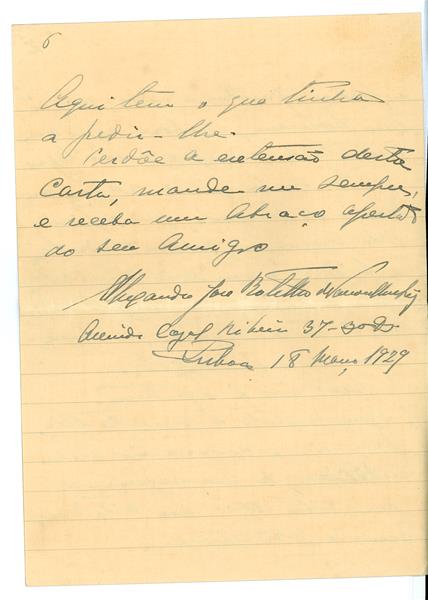 6
Aqui tem o que tinha
a pedir-lhe.
Perdõe a extensão desta
carta, mande-me sempre,
e receba um abraço apertado
do seu amigo
Alexandre José Botelho de Vasconcellos
Avenida Casal Ribeiro 37-
Lisboa 18 Março 1929